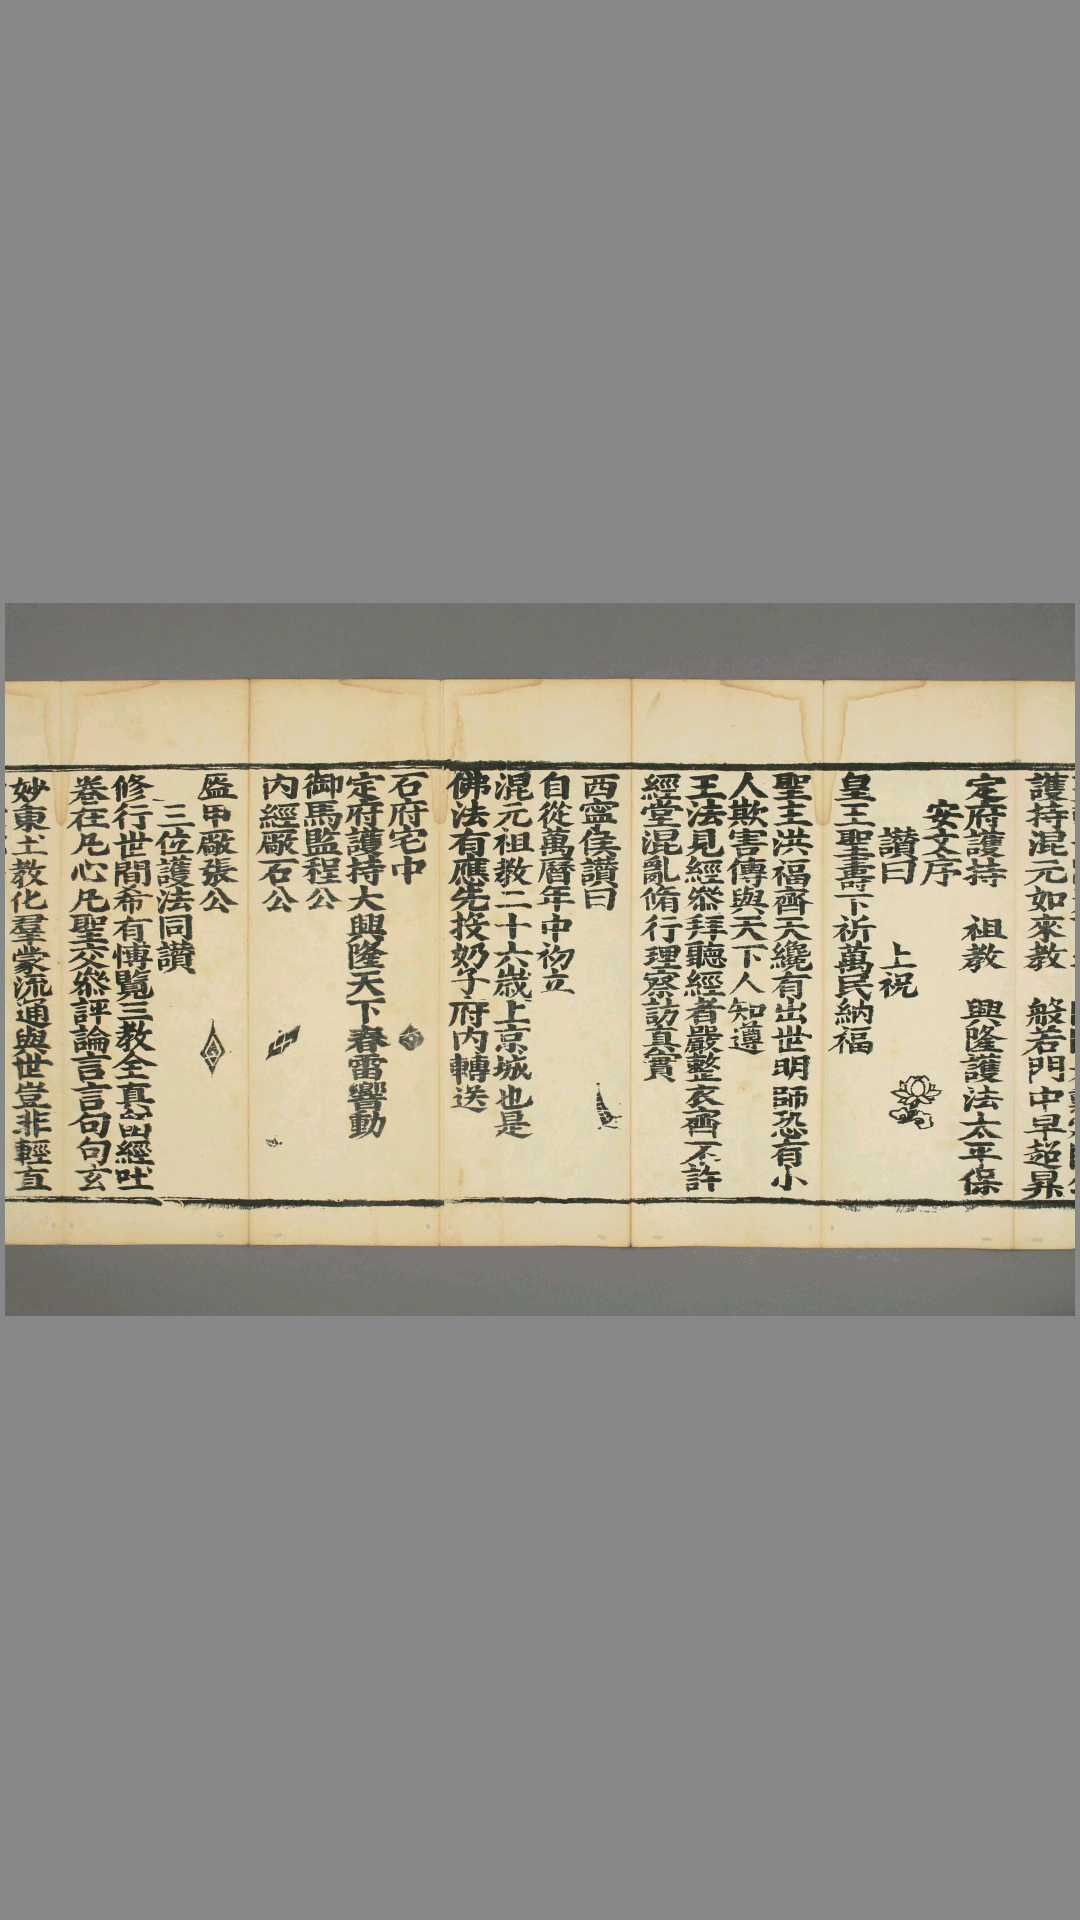 護持混元如來教　般若門中早超昇
定府護持　祖教　興隆護法太平保
安文序
讚曰　上祝
皇王聖壽下祈萬民納福
聖主洪福齊天纔有出世明師恐有小
人欺害傳與天下人知遵
王法見經叅拜聽經者嚴整衣齊不許
經堂混亂脩行理察訪真實
西寧侯讚曰
自從萬曆年中初立
混元祖教二十六歲上京城也是
佛法有應先投奶子府內轉送
石府宅中
定府護持大興隆天下春雷響動
御馬監程公
內經廠石公
盔甲廠張公
三位護法同讚
修行世間希有愽覽三教全真品經吐
卷在凡心凡聖交叅評論言言句句玄
妙東土教化羣蒙流通與世豈非輕直